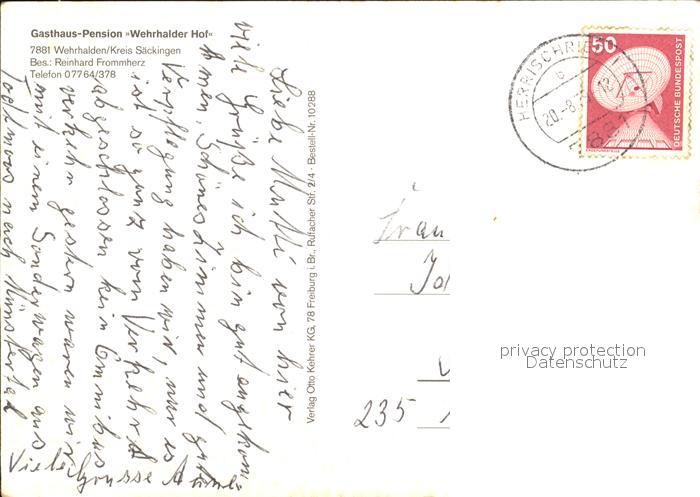 Gasthaus-Pension »Wehrhalder Hof«
7881 Wehrhalden/Kreis Säckingen
Bes.: Reinhard Frommherz
Telefon 07764/378
Liebe Mutti von hier
viele Grüße ich bin gut angekom
men, Schönes Zimmer und gute
Verpflegung haben wir, nur es
ist so ganz vom Verkehr
abgeschlossen kein Omnibus
verkehr gestern waren wir
mit einem Sonderwagen aus
Todtmoos nach Münstertal
Viele Grüsse Anne
Verlag Otto Kehrer KG, 78 Freiburg i. Br., Rufacher Str. 2/4 · Bestell-Nr. 10288
HERRISCHRIED
b
20.-8.
7881
50
DEUTSCHE BUNDESPOST
ERDEFUNKSTELLE
Frau
235
privacy protection
Datenschutz